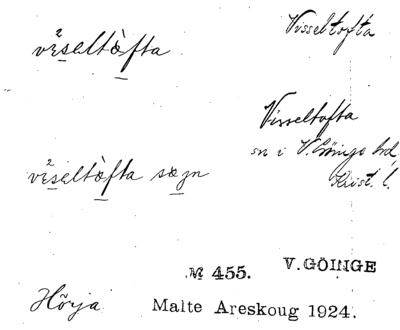 vìseltòfta
Visseltofta
Visseltofta
sn i V. Göinge hd,
Krist. l.
vìseltòfta sogn
№ 455.
V. GÖINGE
Hörja
Malte Areskoug 1924.